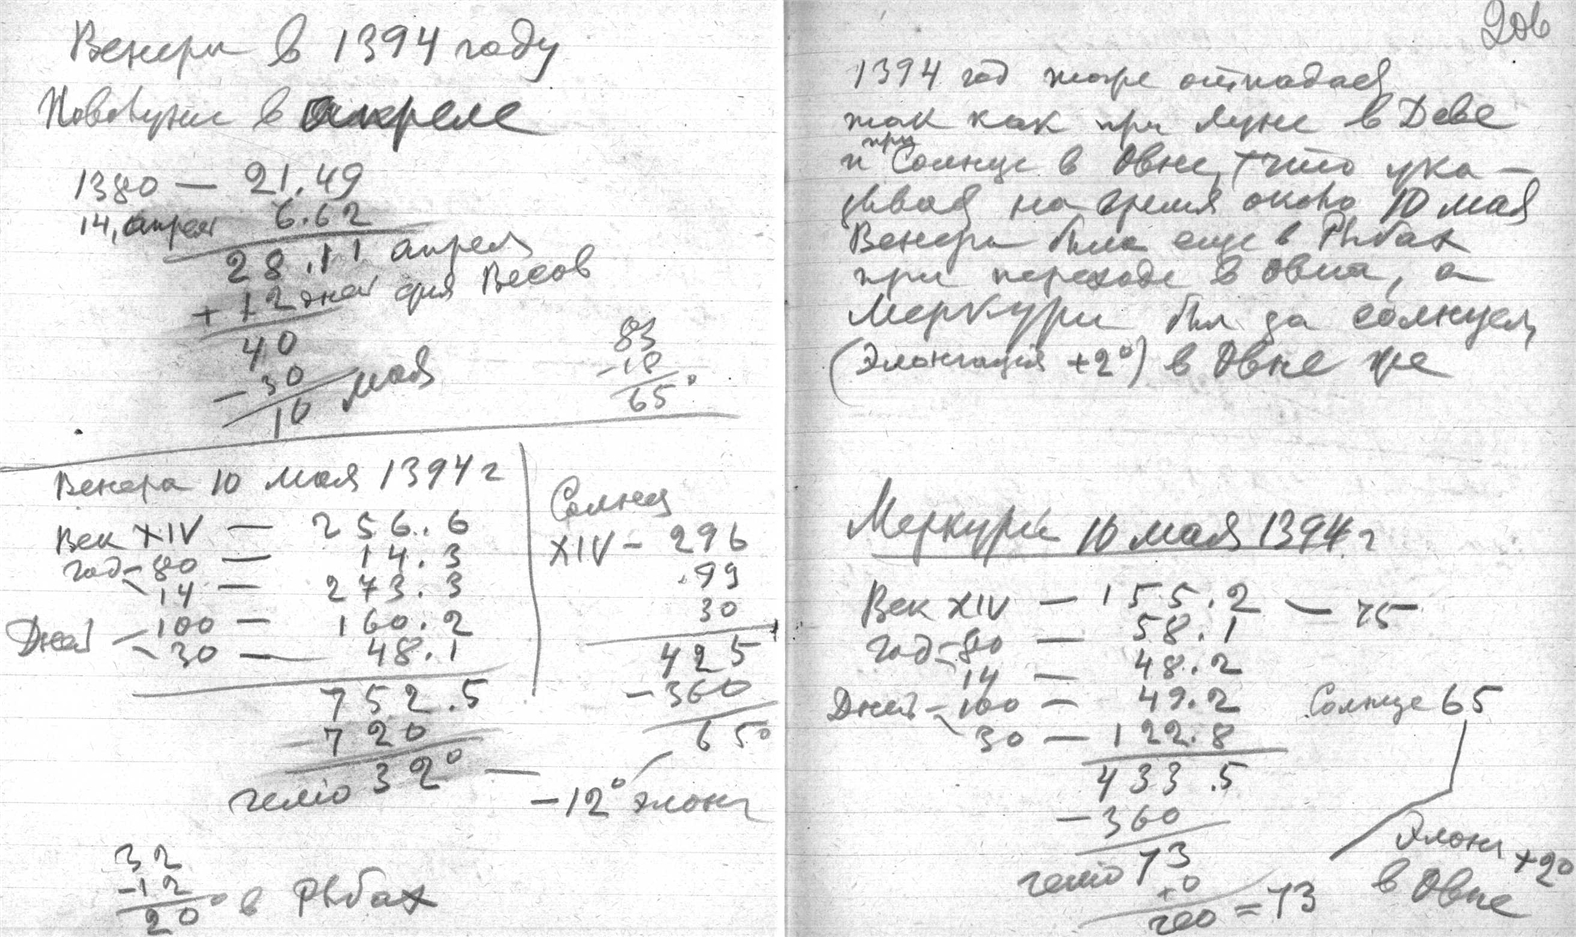 Венера в 1394 году
Новолуние в апреле
1380 — 21.49
14, апрель 6.62
28.11 апреля
+ 12 дней для Весов
40
- 30
10 мая
83
- 18
65°
Венера 10 мая 1394 г
Век XIV — 256.6
год - 80 — 14.3
14 — 273.3
Дней - 100 — 160.2
30 — 48.1
752.5
- 720
гелио 32° —
32
- 12
20° в Рыбах
Солнца
XIV - 296
.99
30
425
- 360
65°
-12° элонг
206
1394 год тоже отпадает
так как при Луне в Деве
и при Солнце в Овне, что ука-
зывает на время около 10 мая
Венера была еще в Рыбах
при переходе в Овна, а
Меркурий был за солнцем
(Элонгация +2°) в Овне же
Меркурий 10 мая 1394 г
Век XIV — 155.2 — 75
Год - 80 — 58.1
14 — 48.2
Дней - 100 — 49.2
30 — 122.8
433.5
- 360
гелио 73
+0
гео = 73
Солнце 65
Элонг +20
в Овне